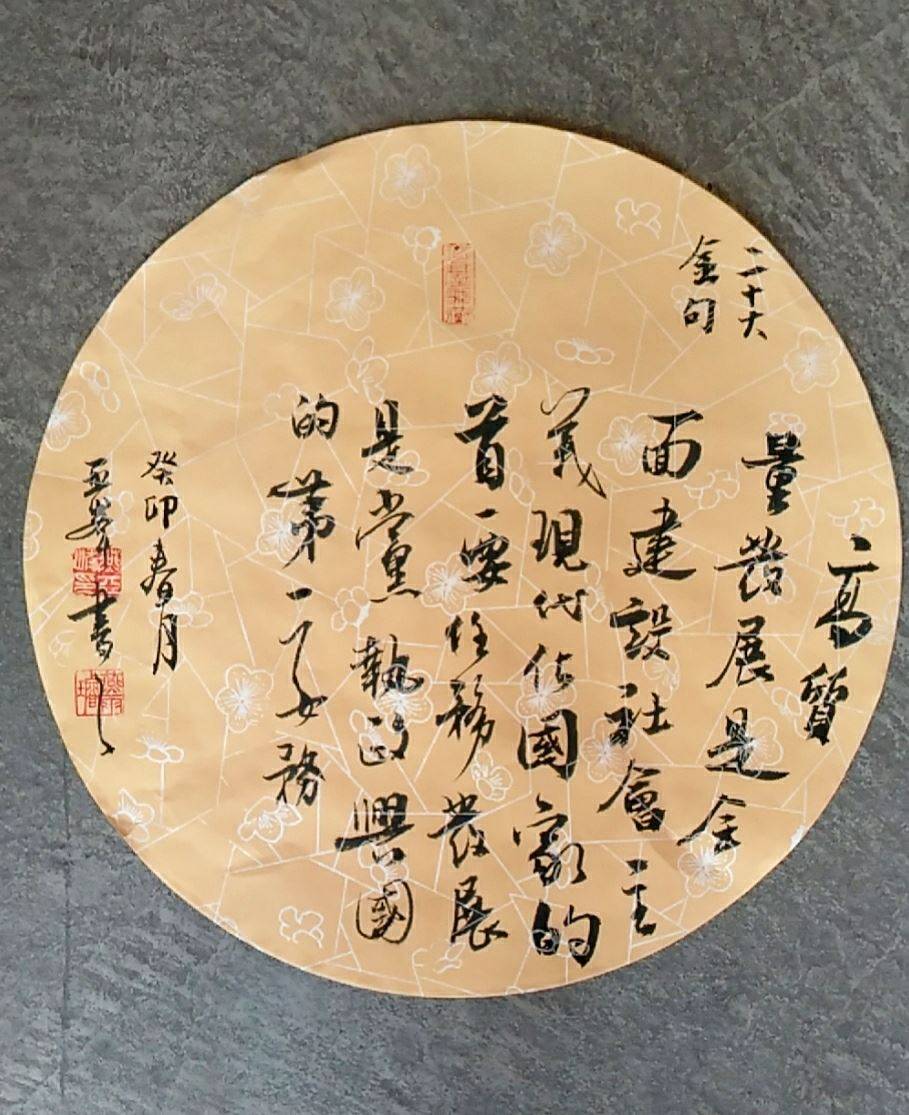 二十大
金句
高質
量發展是全
面建設社會主
義現代化國家的
首要任務發展
是黨執政興國
的第一要務
癸卯春月
書